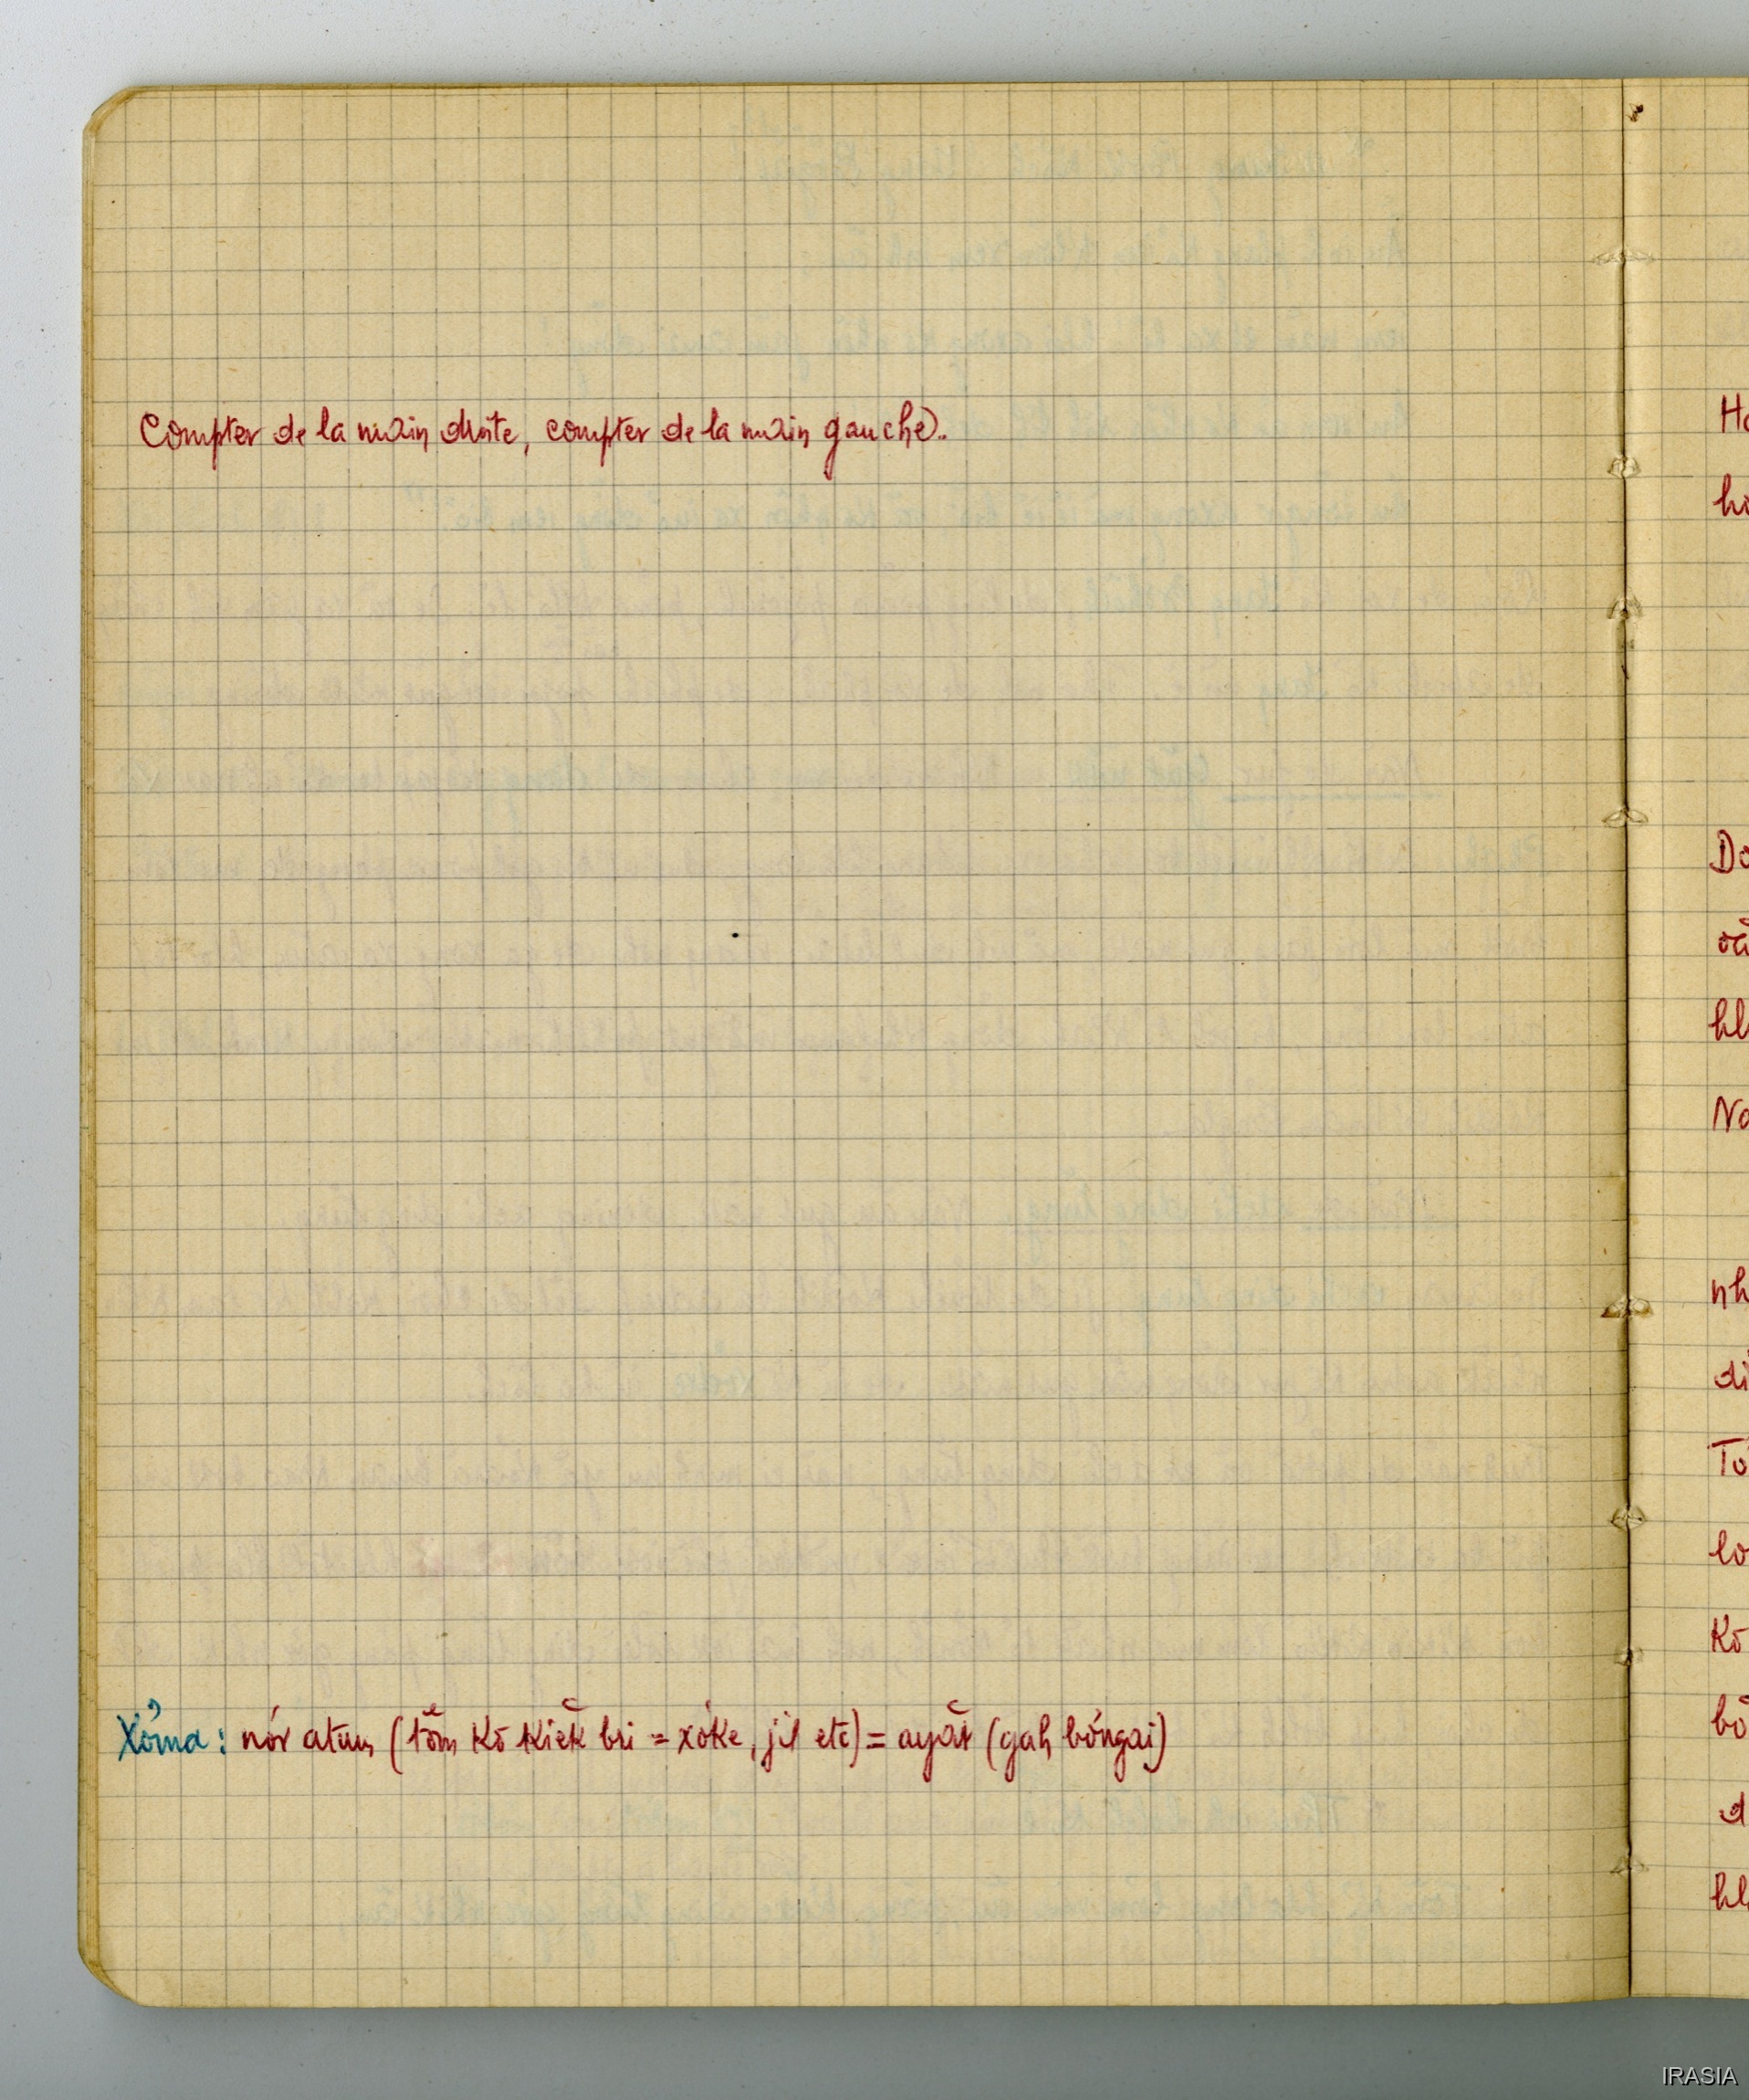 Compter de la main droite, compter de la main gauche).
Xơ̆ma: nór atŭm (tŏm kơ̆ kiĕk bri = xơke, jil etc) = ayăt (gah bơngai)
Ha
hơ
Do
hl
Na
nh
di
Tơ
lo
Kơ̆
bơ̆
d
hl
IRASIA